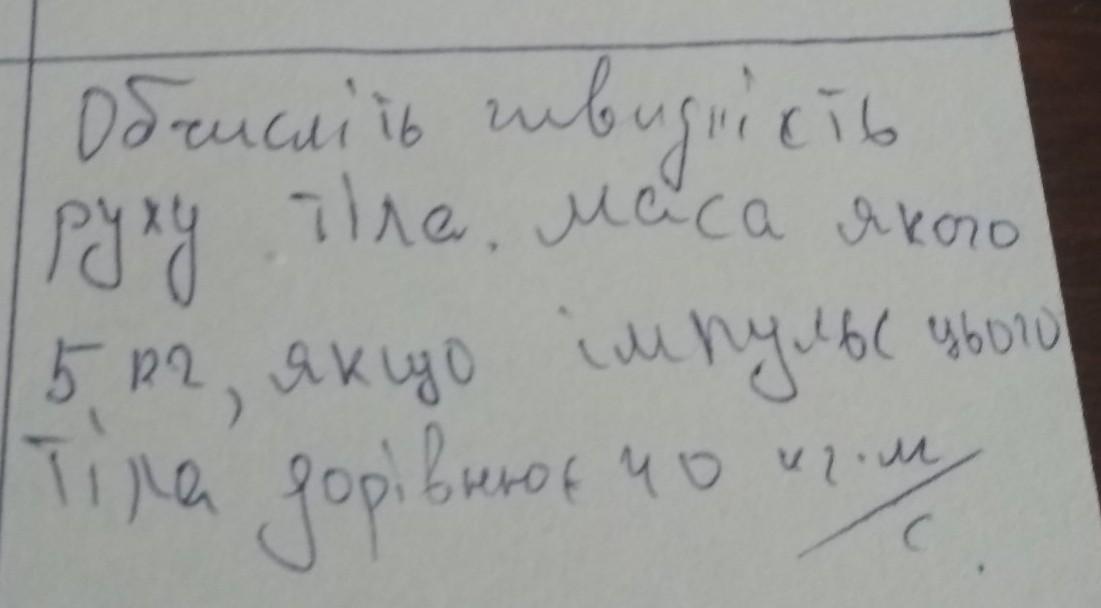 Обчисліть швидкість
руху тіла. маса якого
5 кг, якщо імпульс цього
тіла дорівнює 40 кг·м/с.